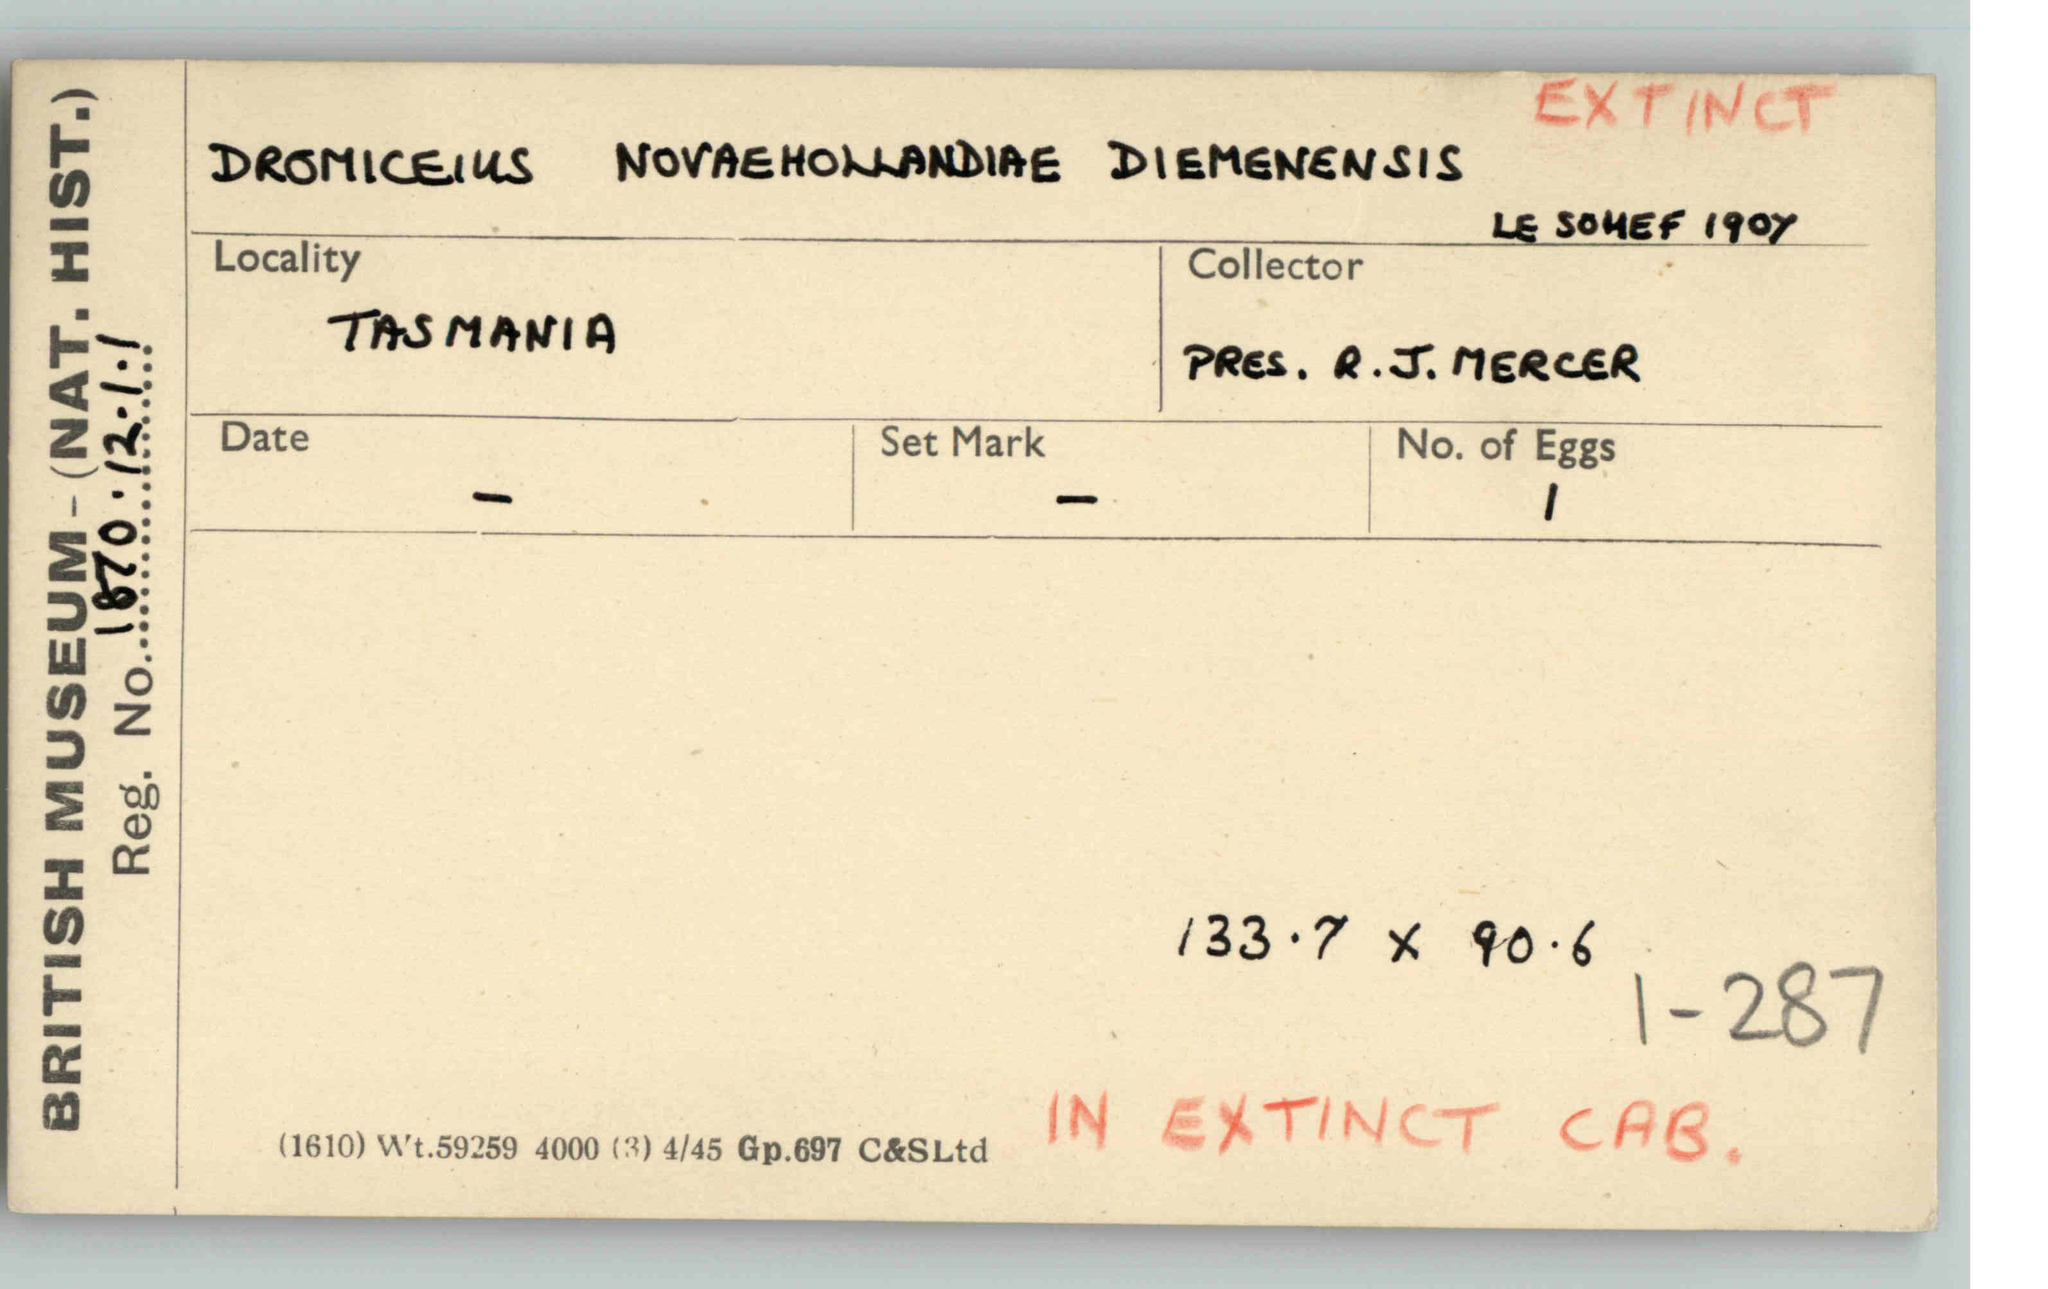 BRITISH MUSEUM-(NAT. HIST.)
Reg. No. 1870.12.1.1
EXTINCT
DROMICEIUS NOVAEHOLLANDIAE DIEMENENSIS
LE SOUEF 1907
Locality
TASMANIA
Collector
PRES. R.J. MERCER
Date
–
Set Mark
–
No. of Eggs
1
133.7 x 90.6
1-287
IN EXTINCT CAB.
(1610) Wt.59259 4000 (3) 4/45 Gp.697 C&SLtd